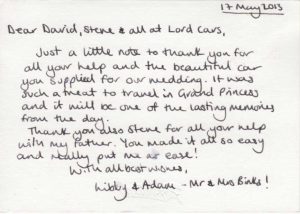 17 May 2013
Dear David, Steve & all at Lord Cars,
Just a little note to thank you for
all your help and the beautiful car
you supplied for our wedding. It was
such a treat to travel in Grand Princess
and it will be one of the lasting memories
from the day.
Thank you also Steve for all your help
with my father. You made it all so easy
and really put me at ease!
With all best wishes,
Libby & Adam - Mr & Mrs Binks!